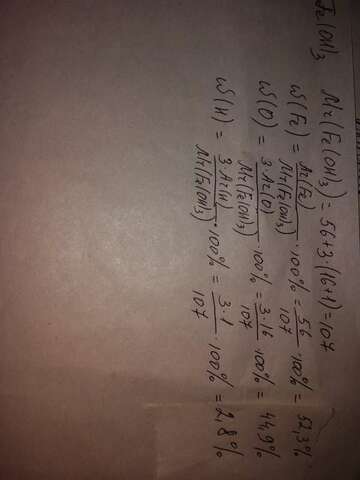 Fe(OH)3 Mr(Fe(OH)3) = 56+3·(16+1)=107
ω(Fe) = Ar(Fe)/Mr(Fe(OH)3) ·100% = 56/107 ·100% = 52,3%
ω(O) = 3·Ar(O)/Mr(Fe(OH)3) ·100% = 3·16/107 ·100% = 44,9%
ω(H) = 3·Ar(H)/Mr(Fe(OH)3) ·100% = 3·1/107 ·100% = 2,8%